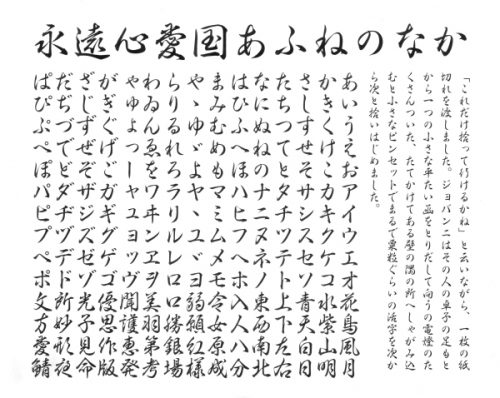 永遠心愛国あふねのなか
「これだけ拾って行けるかね」と云いながら、一枚の紙
切れを渡しました。ジョバンニはその人の卓子の足もと
から一つの小さな平たい函をとりだして向うの電燈のた
くさんついた、たてかけてある壁の隅の所へしゃがみ込
むと小さなピンセットでまるで粟粒ぐらいの活字を次か
ら次と拾いはじめました。
あいうえおアイウエオ花鳥風月
かきくけこカキクケコ水紫山明
さしすせそサシスセソ青天白日
たちつてとタチツテト上下左右
なにぬねのナニヌネノ東西南北
はひふへほハヒフヘホ入人八分
まみむめもマミムメモ令女原成
やゝゆゞよヤヽユヾヨ弱紅様
らりるれろラリルレロ口銀場
わゐんゑをワヰンヱヲ美羽第考
ゃゅょっーャュョッヴ聞護恵発
がぎぐげごガギグゲゴ優思作版
ざじずぜぞザジズゼゾ光子見命
だぢづでどダヂヅデド所妙形夜
ぱぴぷぺぽパピプペポ文方愛鯖